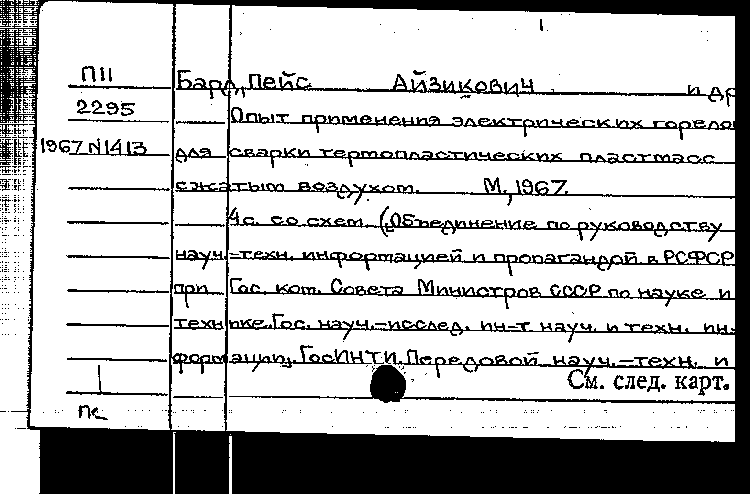 П11 Бард, Лейс Айзикович и др
2295 Опыт применения электрических горело
1967 N1413 для сварки термопластических пластмасс
сжатым воздухом. М, 1967.
4с. со схем. (Объединение по руководству
науч.-техн. информацией и пропагандой в РСФСР
при Гос. ком. Совета Министров СССР по науке и
технике. Гос. науч.-исслед. ин-т науч. и техн. ин-
формации, ГосИНТИ. Передовой науч.-техн. и
См. след. карт.